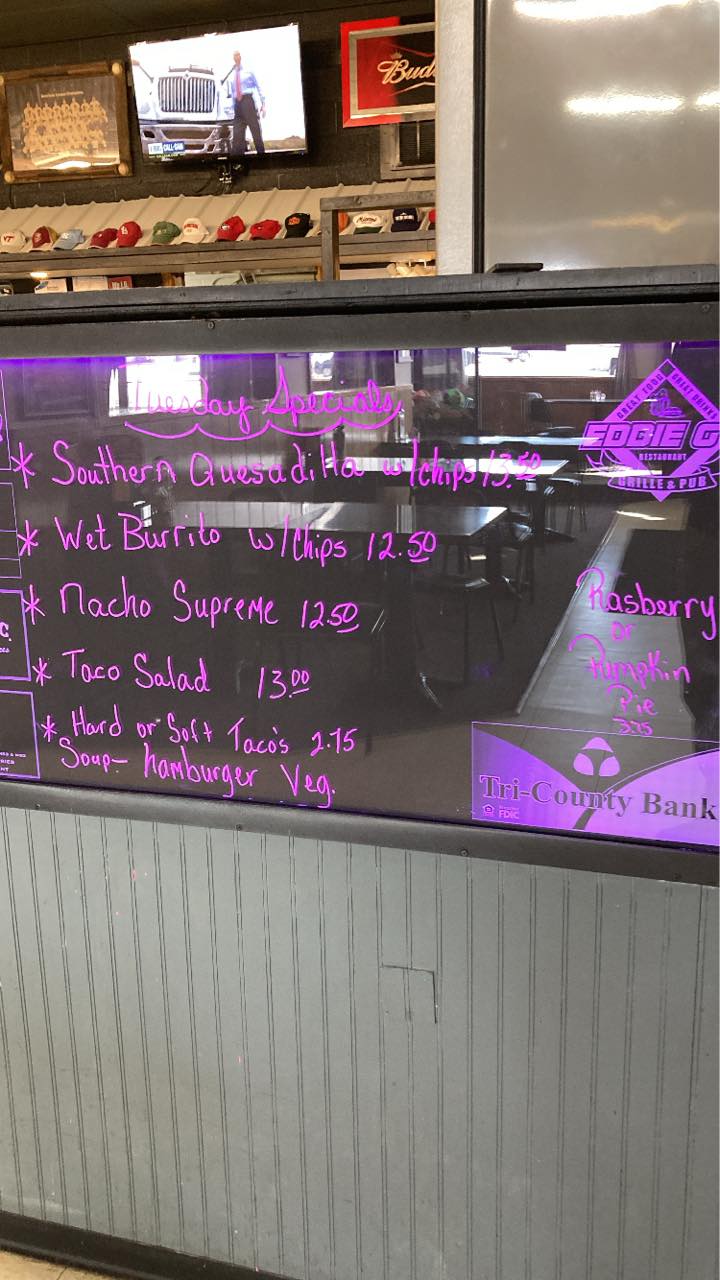 Bud
Tuesday Specials
* Southern Quesadilla w/chips 13.50
* Wet Burrito w/Chips 12.50
* Nacho Supreme 12.50
* Taco Salad 13.00
* Hard or Soft Taco's 2.75
Soup- hamburger Veg.
GREAT FOOD GREAT DRINKS
EDDIE G
RESTAURANT
GRILLE & PUB
Rasberry
or
Pumpkin
Pie
3.75
Tri-County Bank
FDIC